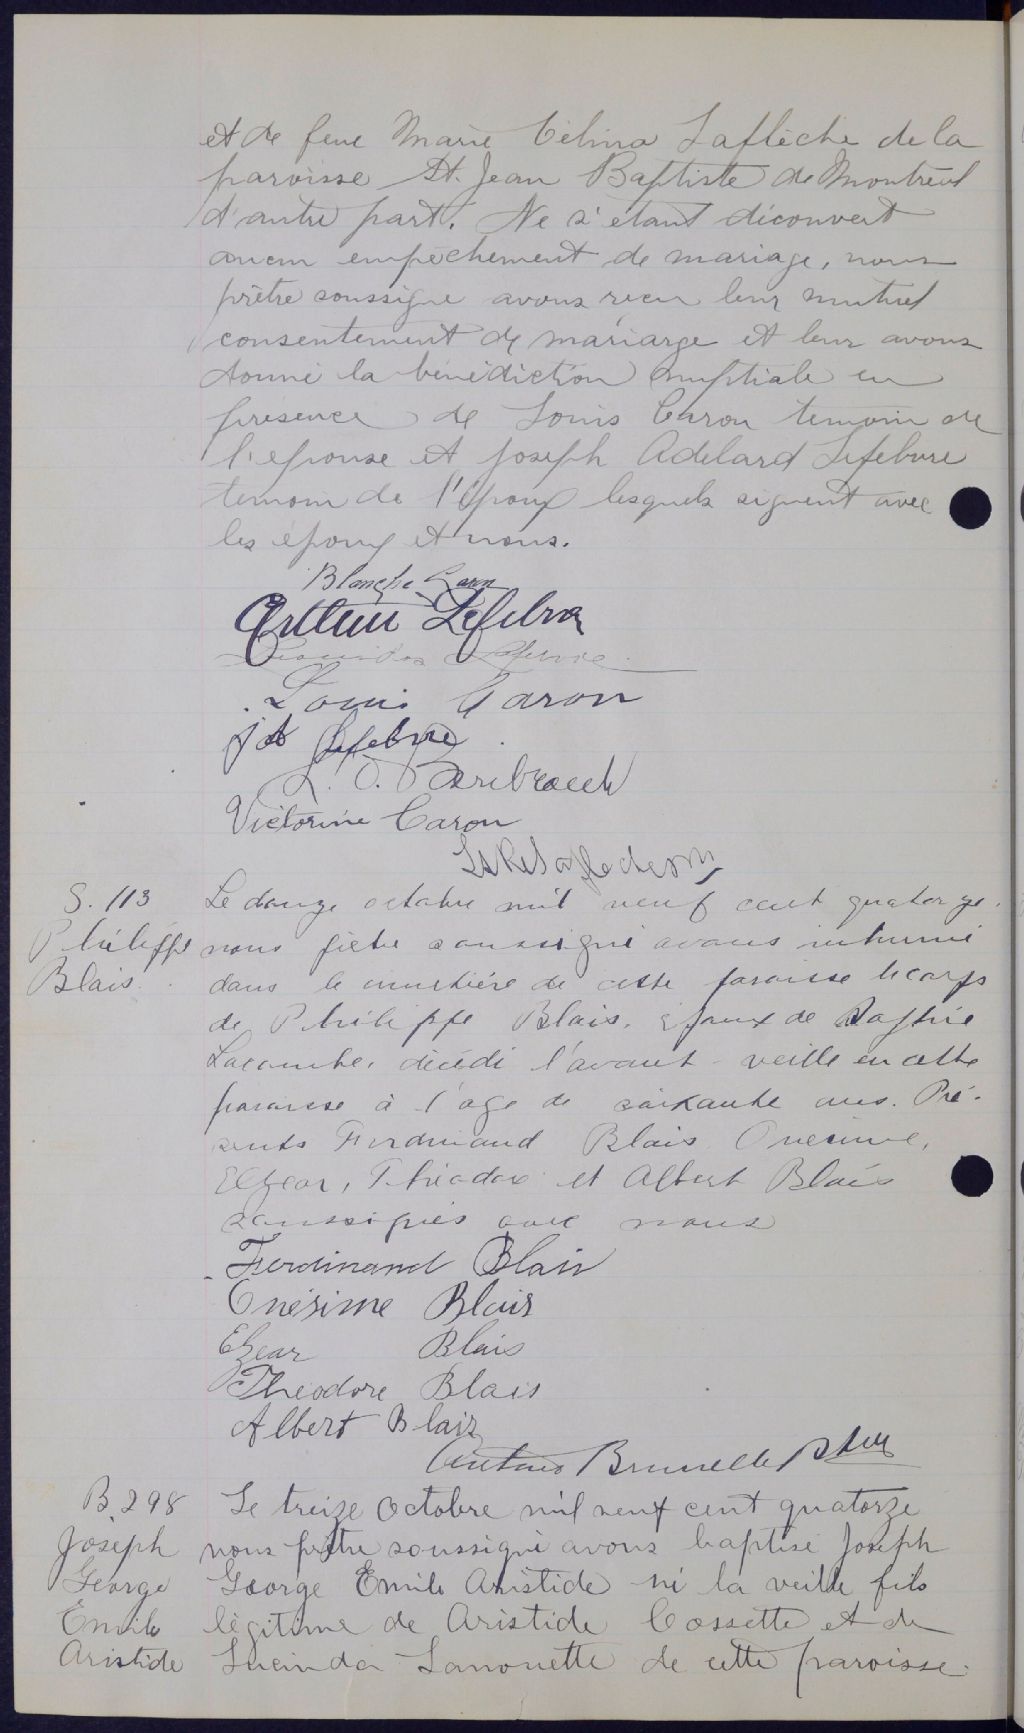 et de feue Marie Célina Laflèche de la
paroisse St. Jean Baptiste de Montréal
d'autre part. Ne s'étant découvert
aucun empêchement de mariage, nous
prêtre soussigné avons reçu leur mutuel
consentement de mariarge et leur avons
donné la bénédiction nuptiale en
présence de Louis Caron temoin de
l'épouse et Joseph Adelard Lefebvre
temoin de l'époux lesquels signent avec
les époux et nous.
Blanche Caron
Arthur Lefebvre
Lefebvre
Louis Caron
J A Lefebvre
L. O.
Victorine Caron
S. 113
Philippe
Blais
Le douze octobre mil neuf cent quatorze
nous prêtre soussigné avons inhumé
dans le cimetière de cette paroisse le corps
de Philippe Blais, époux de Sophie
Lacombe, décédé l'avant-veille en cette
paroisse à l'age de soixante ans. Pré-
sents Ferdinand Blais, Onesime,
Elzear, Théodore et Albert Blais
soussignés avec nous
Ferdinand Blais
Onésime Blais
Elzear Blais
Théodore Blais
Albert Blais
Brunelle Ptre
B. 298
Joseph
George
Emile
Aristide
Le treize Octobre mil neuf cent quatorze
nous prêtre soussigné avons baptisé Joseph
George Emile Aristide né la veille fils
légitime de Aristide Cossette et de
Lucinda Lanouette de cette paroisse.